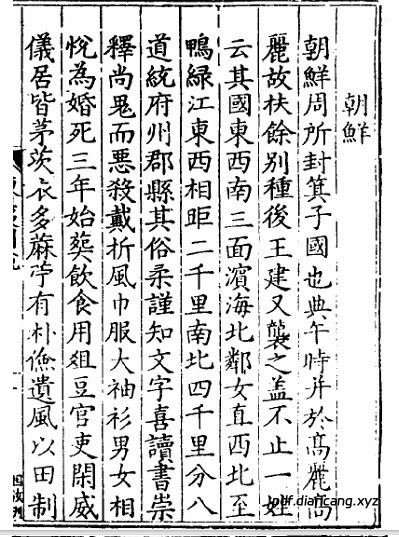 朝鮮
朝鮮周所封箕子國也典午時并於高麗高
麗故扶餘別種後王建又襲之盖不止一姓
云其國東西南三面濱海北鄰女直西北至
鴨緑江東西相距二千里南北四千里分八
道統府州郡縣其俗柔謹知文字喜讀書崇
釋尚鬼而惡殺戴折風巾服大袖衫男女相
悅為婚死三年始葬飲食用俎豆官吏閑威
儀居皆茅茨衣多蔴苧有朴儉遺風以田制
pdf.diancang.xyz